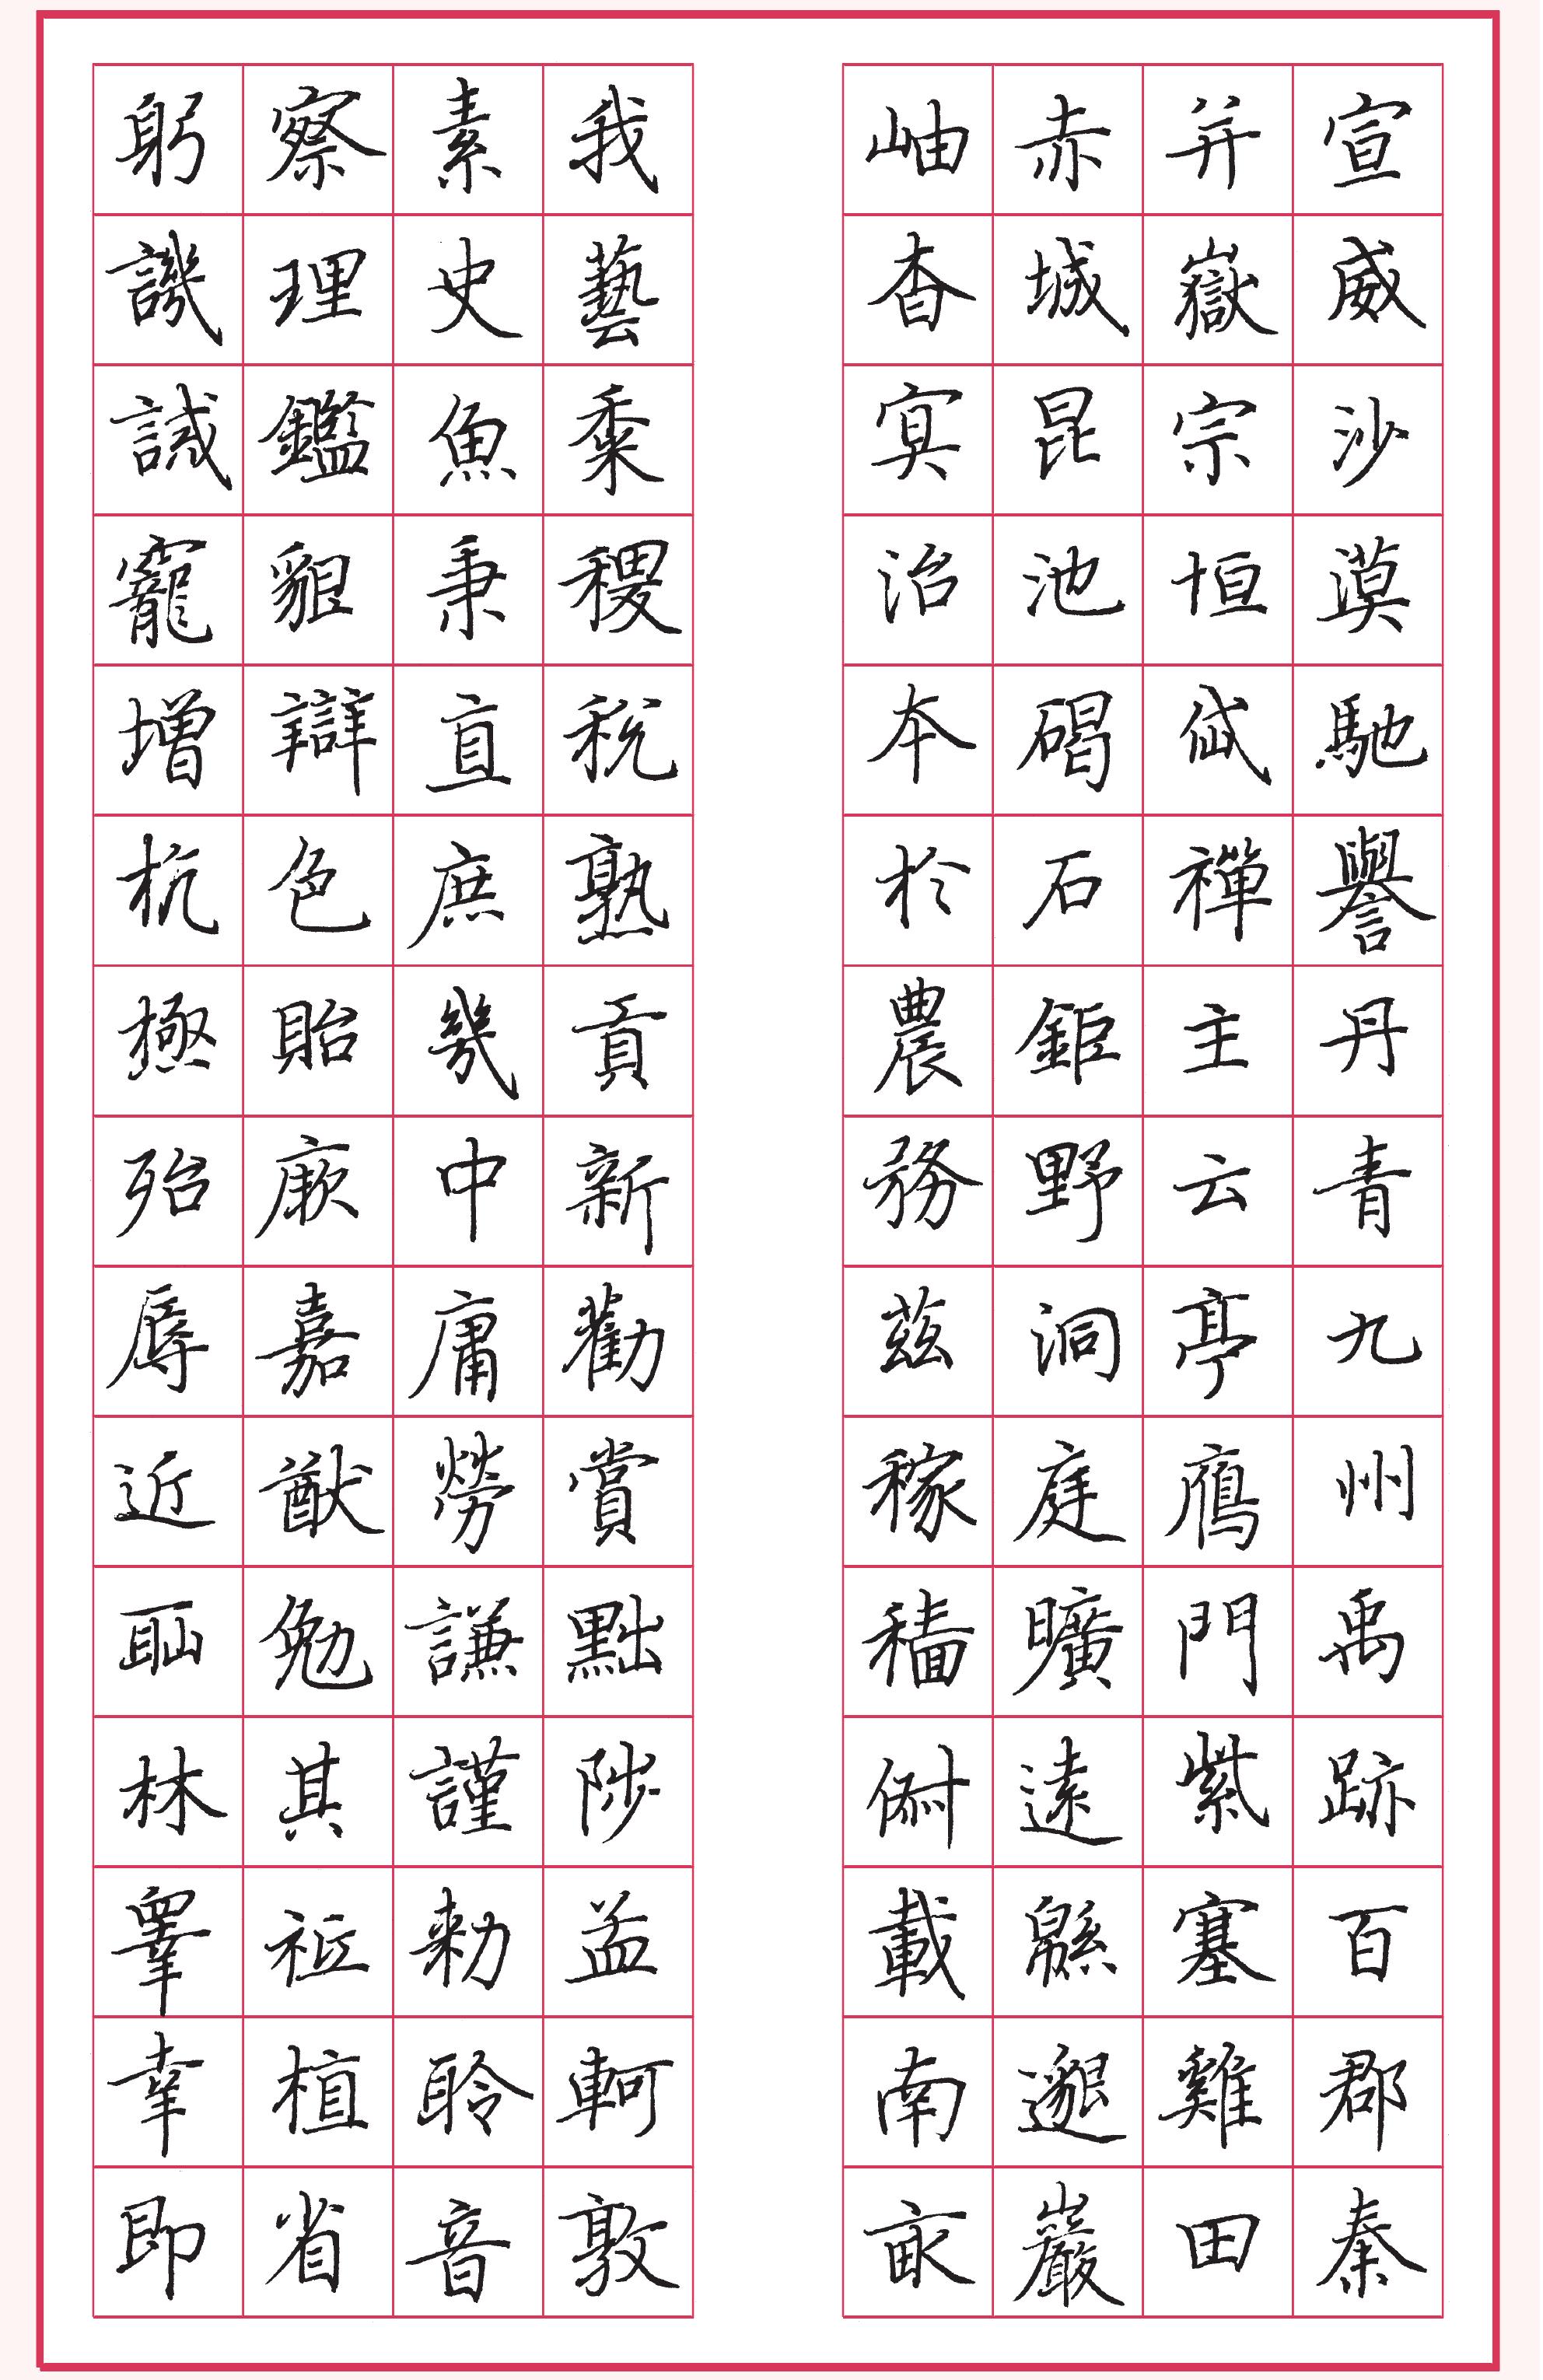 宣威沙漠馳譽丹青九州禹跡百郡秦
并嶽宗恒岱禪主云亭鴈門紫塞雞田
赤城昆池碣石鉅野洞庭曠遠緜邈巖
岫杳冥治本於農務茲稼穡俶載南畝
我藝黍稷稅熟貢新勸賞黜陟孟軻敦
素史魚秉直庶幾中庸勞謙謹勑聆音
察理鑑貌辯色貽厥嘉猷勉其祗植省
躬譏誡寵增抗極殆辱近恥林睪幸即